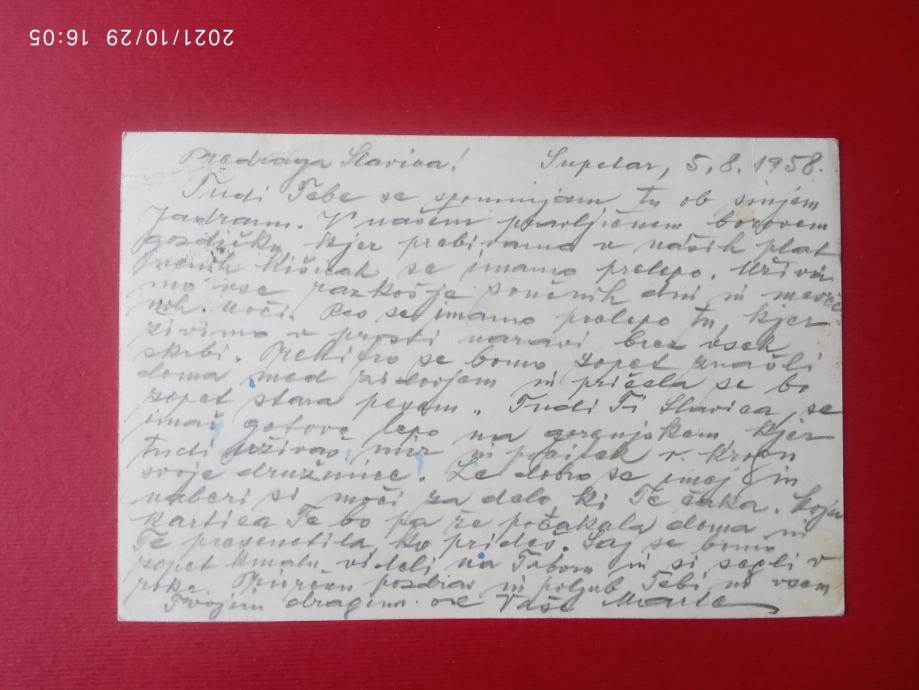 2021/10/29 16:05
Predraga Slavica! Supetar, 5.8.1958.
Tudi Tebe se spominjam tu ob sinjem
Jadranu. V našem pravljičnem borovem
gozdičku, kjer prebivamo v naših plat
nenih hišicah se imamo prelepo. Uživa
mo vse razkošje sončnih dni in
noči. Res se imamo prelepo tu, kjer
živimo v prosti naravi brez vseh
skrbi. Prehitro se bomo zopet znašli
doma med zidovjem in pričela se bo
zopet stara pesem. Tudi Ti Slavica se
imaš gotovo lepo na gorenjskem, kjer
tudi uživaš mir in počitek v krogu
svoje družinice. Le dobro se imej in
naberi si moči za delo ki Te čaka. Moja
kartica Te bo pa že počakala doma in
Te presenetila ko prideš. Saj se bomo
zopet kmalu videli na Tvojem in si segli v
roke. Prisrčen pozdrav in poljub Tebi in vsem
Tvojim dragim od Vaše Marte